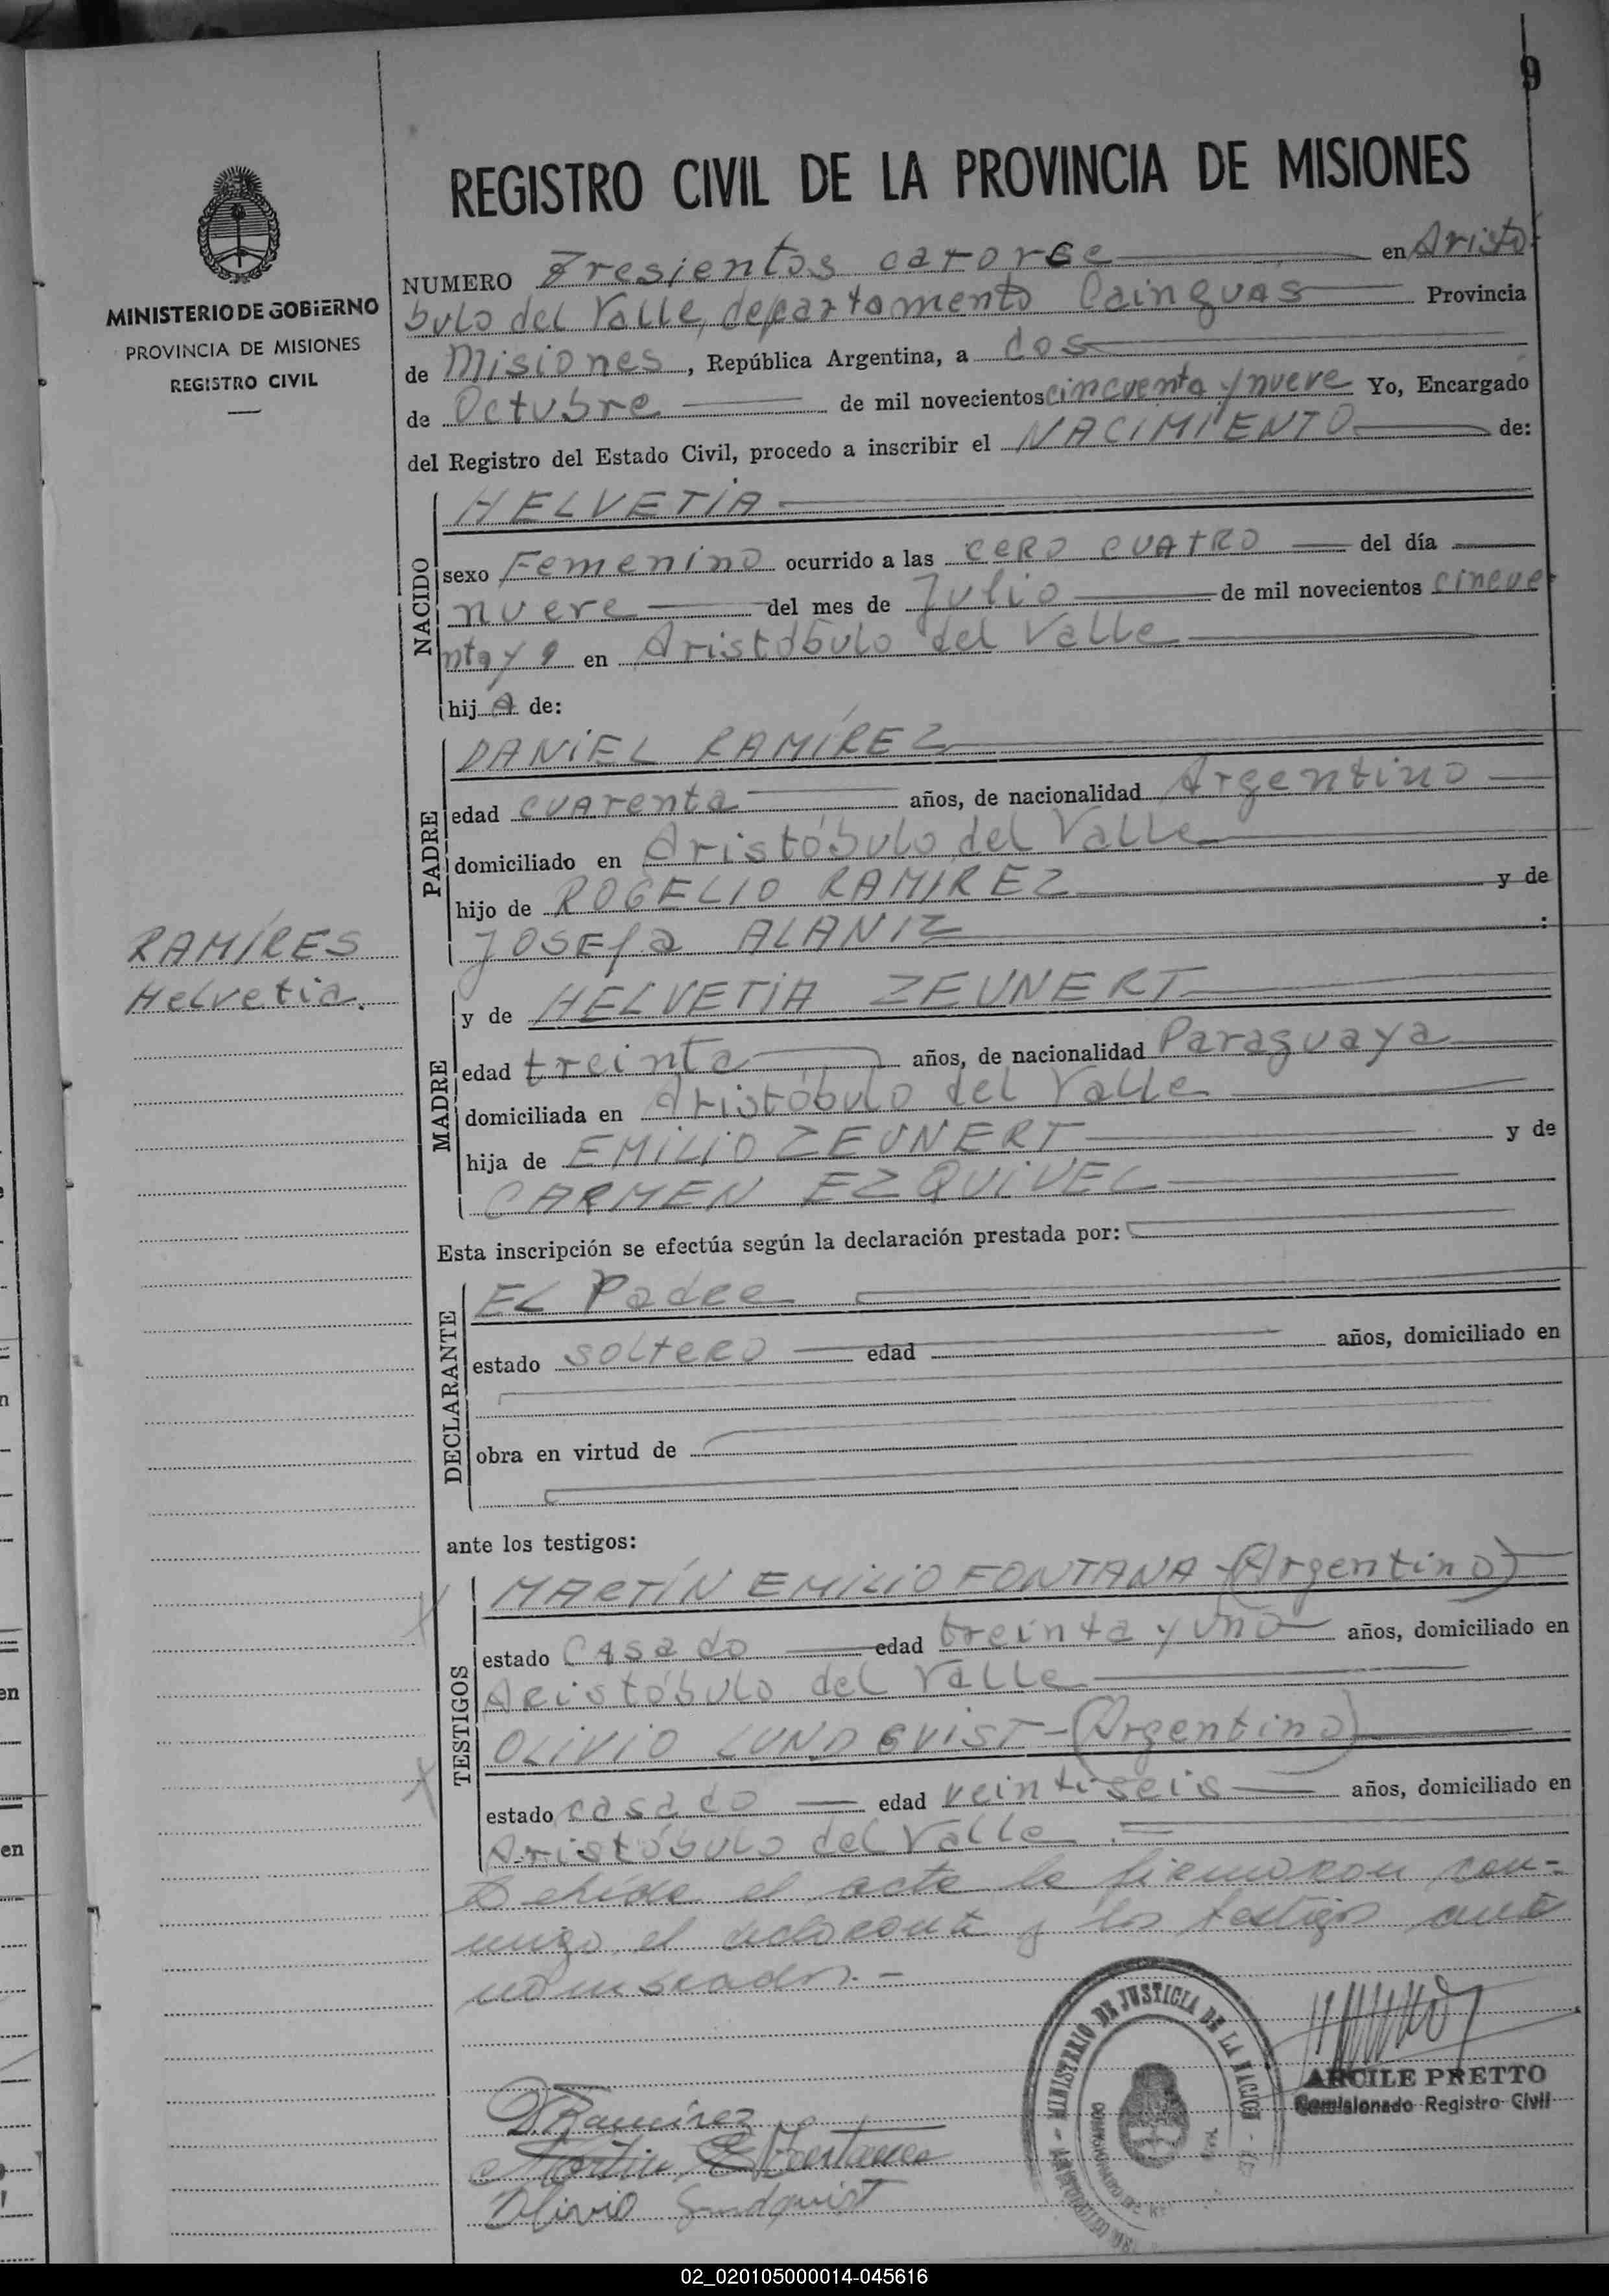 9
REGISTRO CIVIL DE LA PROVINCIA DE MISIONES
MINISTERIO DE GOBIERNO
PROVINCIA DE MISIONES
REGISTRO CIVIL
NUMERO Tresientos catorce en Aristo
bulo del Valle, departamento Cainguas Provincia
de Misiones, República Argentina, a dos
de Octubre de mil novecientos cincuenta y nueve Yo, Encargado
del Registro del Estado Civil, procedo a inscribir el NACIMIENTO de:
NACIDO
HELVETIA
sexo Femenino ocurrido a las cero cuatro del día
nueve del mes de Julio de mil novecientos cincue
nta y 9 en Aristóbulo del Valle
hij A de:
PADRE
DANIEL RAMÍREZ
edad cuarenta años, de nacionalidad Argentino
domiciliado en Aristóbulo del Valle
hijo de ROGELIO RAMIREZ y de
JOSEfa ALANIZ :
RAMÍRES
Helvetia.
MADRE
y de HELVETIA ZEUNERT
edad treinta años, de nacionalidad Paraguaya
domiciliada en Aristóbulo del Valle
hija de EMILIO ZEUNERT y de
CARMEN EZQUIVEL
Esta inscripción se efectúa según la declaración prestada por:
DECLARANTE
EL Padre
estado soltero edad años, domiciliado en
obra en virtud de
ante los testigos:
TESTIGOS
MARTÍN EMILIO FONTANA-(Argentino)
estado Casado edad treinta y uno años, domiciliado en
Aristóbulo del Valle
OLIVIO LUNDQVIST-(Argentino)
estado casado edad veintiseis años, domiciliado en
Aristóbulo del Valle.
el acta la firmaron con-
migo, el declarante y los testigos ante
nombrados.-
MINISTERIO DE JUSTICIA DE LA NACION
ARCILE PRETTO
Comisionado Registro Civil
D. Ramírez
Martin E Fontana
Olivio Lundqvist
02_020105000014-045616